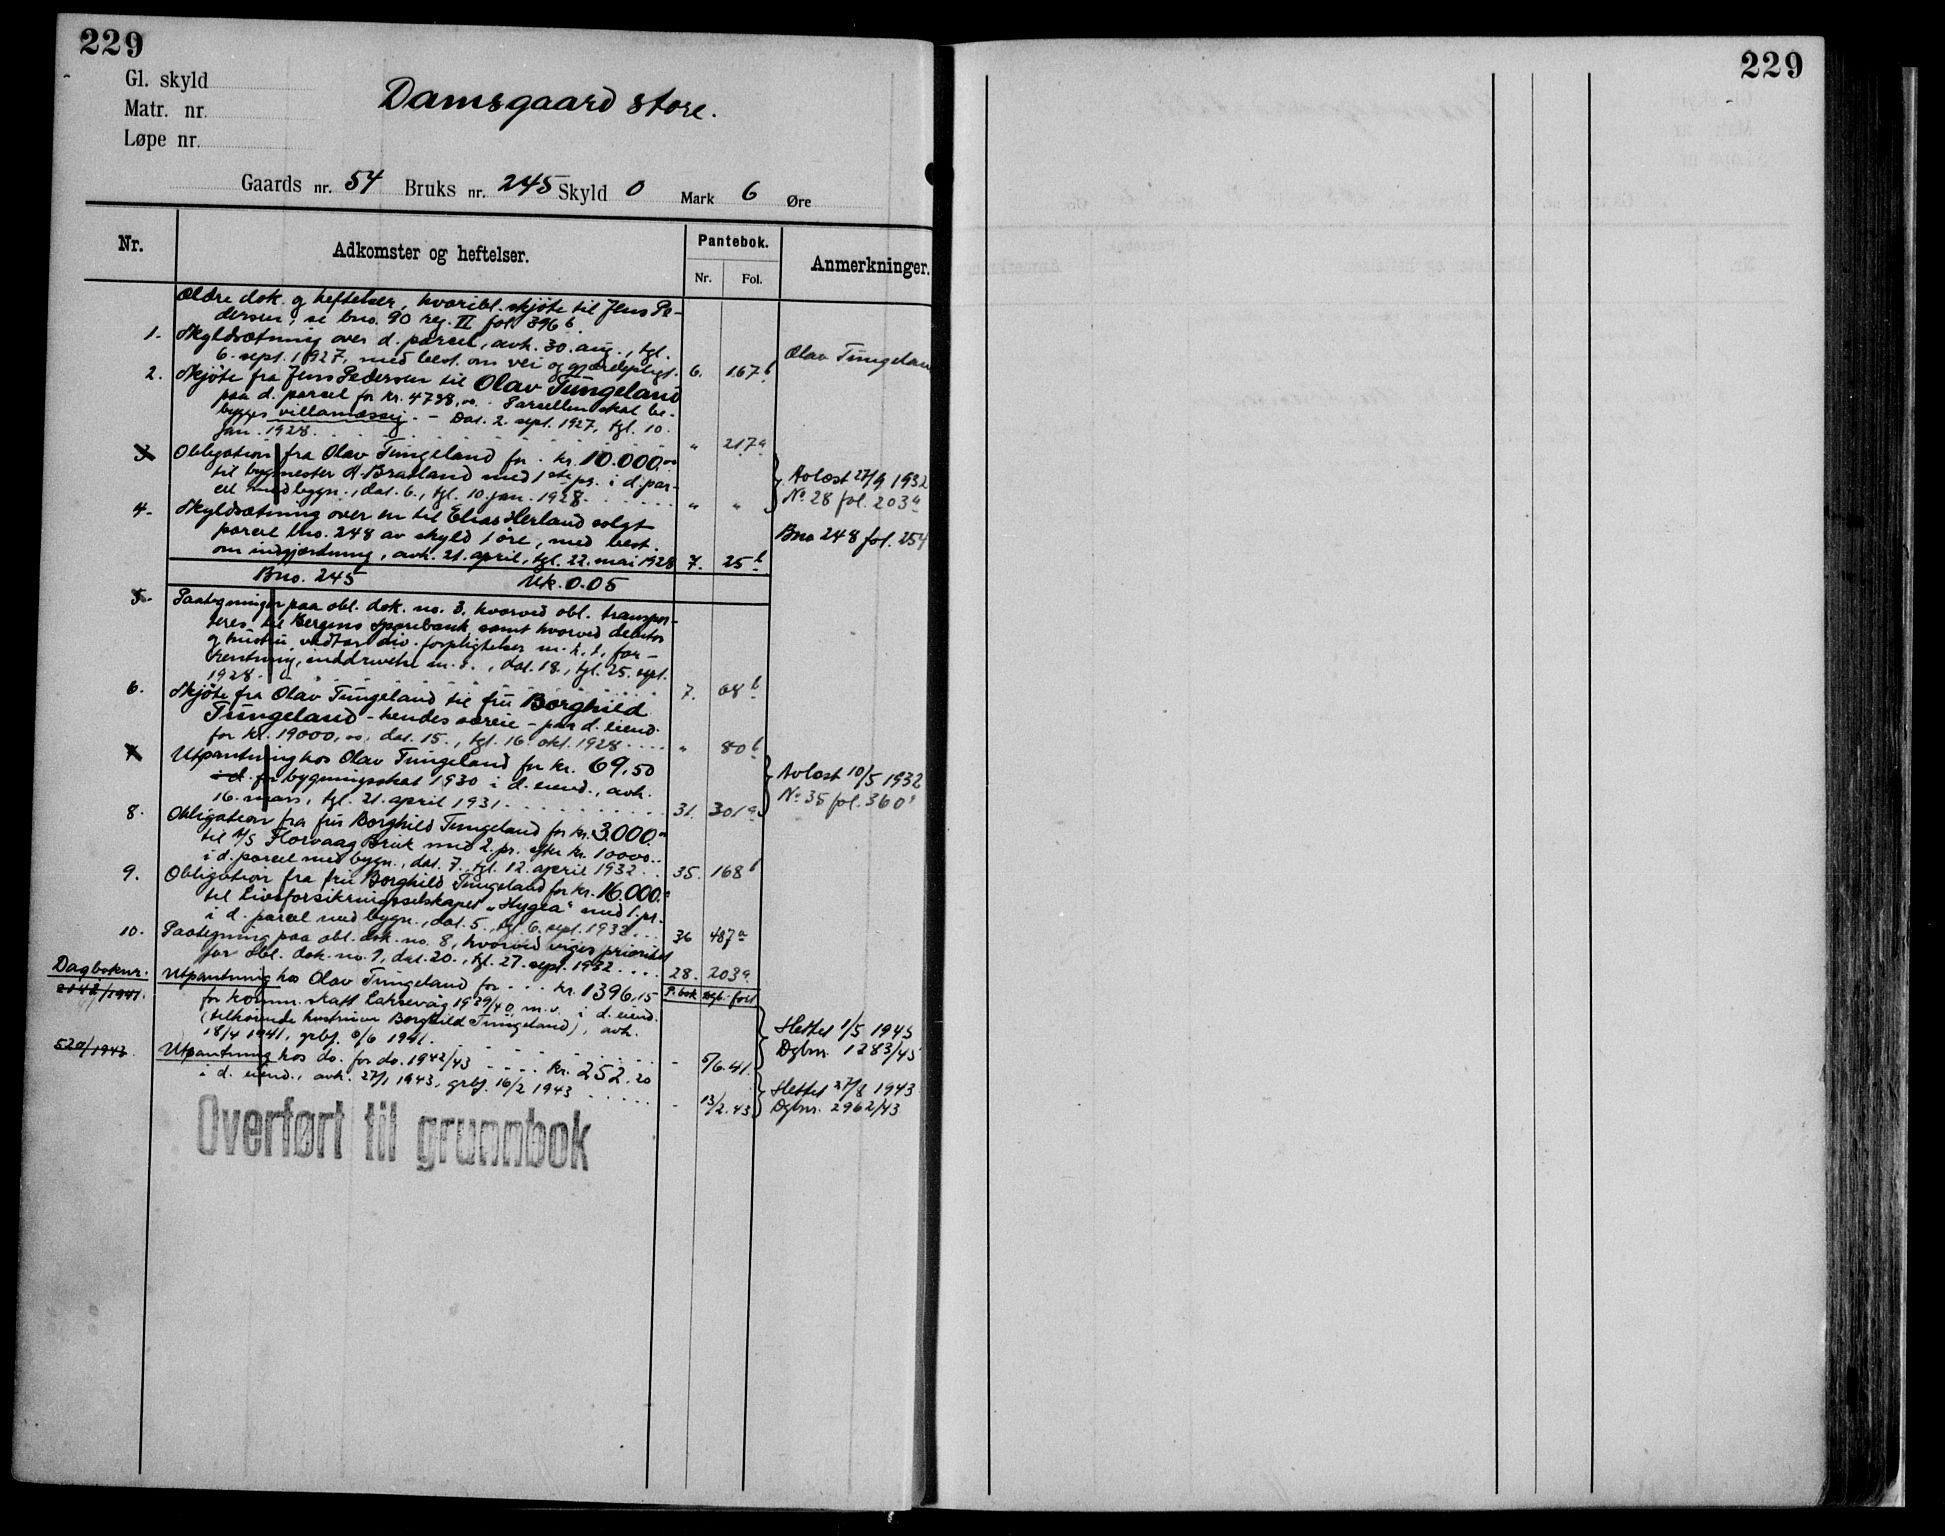 229
Gl. skyld
Matr. nr.
Løpe nr.
Damsgaard store.
Gaards nr. 54 Bruks nr. 245 Skyld 0 Mark 6 Øre
Nr. Adkomster og heftelser. Pantebok. Anmerkninger.
Nr. Fol.
Ældre dok. og heftelser, hvoribl. skjøte til Jens Pe-
dersen, se bno. 90 reg. II fol 396 b.
1. Skyldsætning over d. parcel, avh. 30. aug., tgl.
6. sept. 1927, med best. om vei og gjærdepligt. 6. 167 b
Olav Tungeland
2. Skjøte fra Jens Pedersen til Olav Tungeland
paa d. parcel for kr. 4738,00. Parsellen skal be-
bygges villamæssig. - Dat. 2. sept. 1927, tgl. 10.
jan. 1928. " 217 a
3. Obligation fra Olav Tungeland for kr. 10.000.00
til bygmester A. Bratland med 1ste pr. i d. par-
cel med bygn., dat. 6., tgl. 10. jan. 1928. " "
Avlæst 27/9 1932
No 28 fol. 203 a
4. Skyldsætning over en til Elias Herland solgt
parcel bno. 248 av skyld 1 øre, med best.
om indgjærdning, avh. 21. april, tgl. 22. mai 1928 7. 25 b
Bno 248 fol. 254
Bno. 245 Mk. 0.05
5. Paategninger paa obl. dok. no. 3, hvorved obl. transpor-
teres til Bergens Sparebank samt hvorved debitor
og hustru vedtar div. forpligtelser m. h. t. for-
rentning, inddrivelse m. v., dat. 18., tgl. 25. sept.
1928. 7. 68 b
6. Skjøte fra Olav Tungeland til fru Borghild
Tungeland - hendes særeie - paa d. eiend.
for kr. 19000,00, dat. 15., tgl. 16. okt. 1928 " 80 b
7. Utpantning hos Olav Tungeland for kr. 69,50
i d. for bygningsskat 1930 i d. eiend., avh.
16. mars, tgl. 21. april 1931. 31. 301 a
Avlæst 10/5 1932
No 35 fol. 360 a
8. Obligation fra fru Borghild Tungeland for kr. 3.000.00
til A/S Florvaag Bruk med 2. pr. efter kr. 10000..
i d. parcel med bygn., dat. 7., tgl. 12. april 1932. 35. 168 b
9. Obligation fra fru Borghild Tungeland for kr. 16.000.
til Livsforsikringsselskapet "Hygea" med 1. pr.
i d. parcel med bygn., dat. 5., tgl. 6. sept. 1932 36 487 a
10. Paategning paa obl. dok. no. 8, hvorved viges prioritet
for obl. dok. no. 9, dat. 20., tgl. 27. sept. 1932. 28. 203 a
Dagboknr. P. bok dgb. ført
2142/1941. Utpantning hos Olav Tungeland for kr. 1396,15
for komm. skatt Laksevåg 1939/40 m. v. i d. eiend.
(tilhørende hustruen Borghild Tungeland), avh.
18/4 1941, grbf. 6/6 1941. - 5/6.41.
Slettet 1/5 1945
Dgbnr. 1283/45
520/1943. Utpantning hos do. for do. 1942/43 kr. 252.20
i d. eiend., avh. 27/1 1943, grbf. 16/2 1943 - 13/2.43
Slettet 27/8 1943
Dgbnr. 2962/43
Overført til grunnbok
229